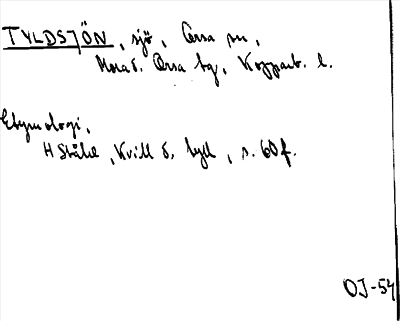 TYLDSJÖN, sjö, Orsa sn,
Mora o. Orsa tg, Kopparb. l.
Etymologi,
H Ståhl, Kvill o. tyll, s. 60 f.
OJ-54